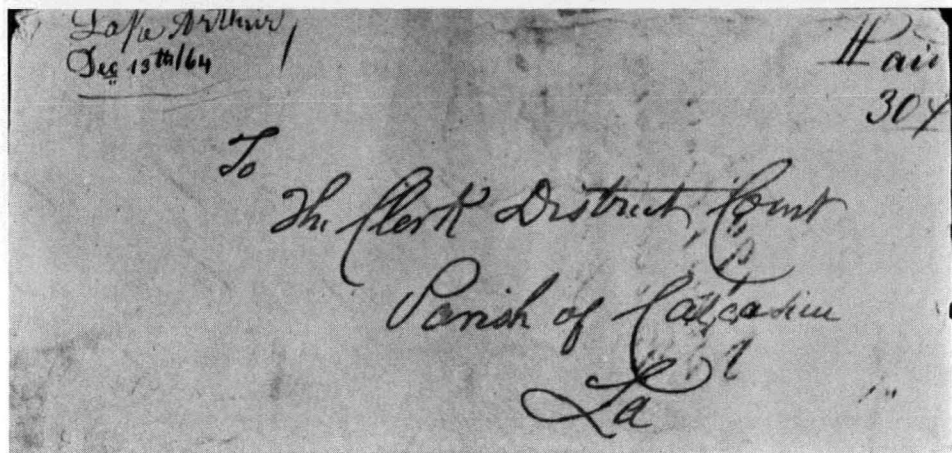 Lake Arthur
Dec 13th/64
Paid
30
To
The Clerk District Court
Parish of Calcasieu
La